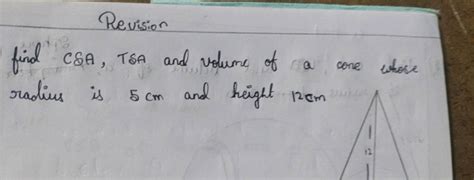 Revision
find CSA, TSA and volume of a cone whose
radius is 5 cm and height 12cm
12